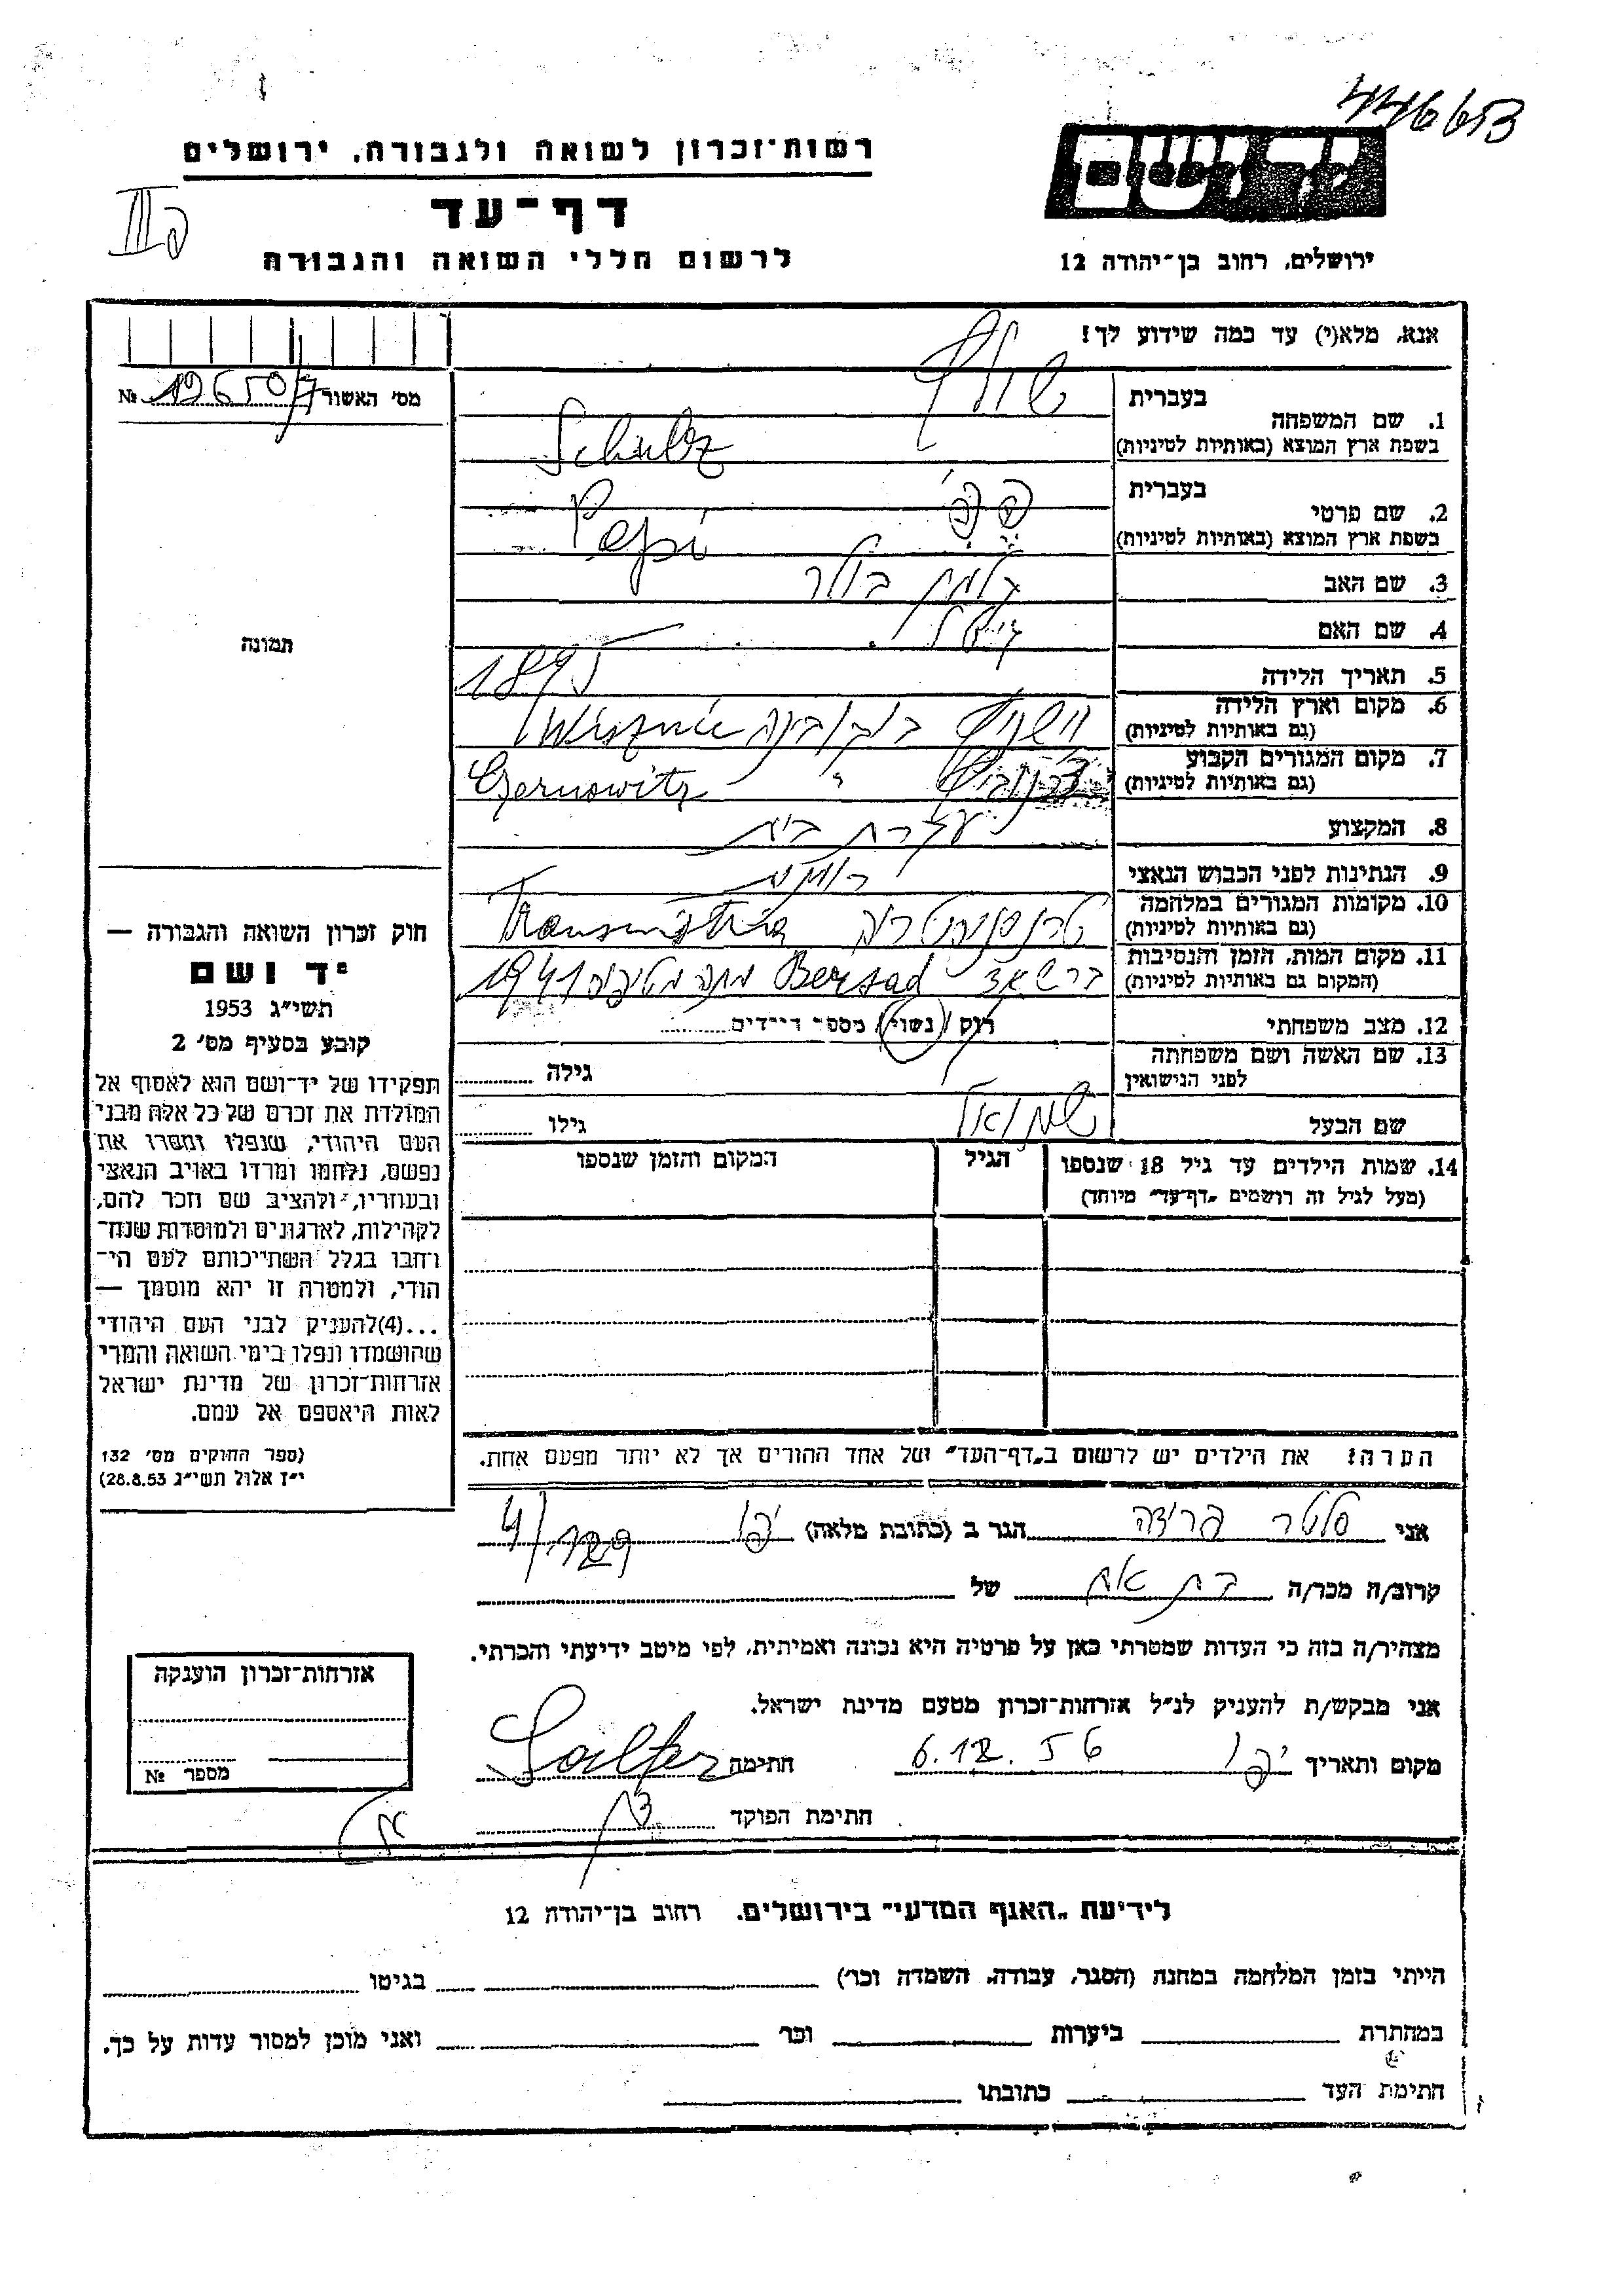 446653
רשות־זכרון לשואה ולגבורה, ירושלים
דף־עד
לרשום חללי השואה והגבורה
יד ושם
ירושלים, רחוב בן־יהודה 12
אנא, מלא(י) עד כמה שידוע לך!
מס' האשור 19650/7 №
תמונה
1. שם המשפחה
בעברית שולץ
בשפת ארץ המוצא (באותיות לטיניות) Schulz
2. שם פרטי
בעברית פפי
בשפת ארץ המוצא (באותיות לטיניות) Pepi
3. שם האב
4. שם האם
5. תאריך הלידה 1895
6. מקום וארץ הלידה
(גם באותיות לטיניות) וישניץ בוקובינה Wisznic
7. מקום המגורים הקבוע
(גם באותיות לטיניות) צרנוביץ " Czernowitz
8. המקצוע עקרת בית
9. הנתינות לפני הכבוש הנאצי
10. מקומות המגורים במלחמה
(גם באותיות לטיניות) טרנסניסטריה Transnistria
11. מקום המות, הזמן והנסיבות
(המקום גם באותיות לטיניות) ברשאד Bersad מתה מטיפוס 1941
12. מצב משפחתי רוק / נשוי / מספר הילדים
13. שם האשה ושם משפחתה
לפני הנישואין גילה
שם הבעל שמואל גילו
14. שמות הילדים עד גיל 18 שנספו
(מעל לגיל זה רושמים „דף־עד" מיוחד)
הגיל
המקום והזמן שנספו
הערה! את הילדים יש לרשום ב„דף־העד" של אחד ההורים אך לא יותר מפעם אחת.
חוק זכרון השואה והגבורה —
יד ושם
תשי"ג 1953
קובע בסעיף מס' 2
תפקידו של יד־ושם הוא לאסוף אל
המולדת את זכרם של כל אלה מבני
העם היהודי, שנפלו ומסרו את
נפשם, נלחמו ומרדו באויב הנאצי
ובעוזריו, ולהציב שם וזכר להם,
לקהילות, לארגונים ולמוסדות שנח־
רבו בגלל השתייכותם לעם הי־
הודי, ולמטרה זו יהא מוסמך —
...(4)להעניק לבני העם היהודי
שהושמדו ונפלו בימי השואה והמרי
אזרחות־זכרון של מדינת ישראל
לאות היאספם אל עמם.
(ספר החוקים מס' 132
י"ז אלול תשי"ג 28.8.53)
אני סלטר פרידה הגר ב (כתובת מלאה) יפו
קרוב/ה מכר/ה בת אח של
מצהיר/ה בזה כי העדות שמסרתי כאן על פרטיה היא נכונה ואמיתית, לפי מיטב ידיעתי והכרתי.
אני מבקש/ת להעניק לנ"ל אזרחות־זכרון מטעם מדינת ישראל.
מקום ותאריך יפו 6.12.56 חתימה Salter
חתימת הפוקד
אזרחות־זכרון הוענקה
מספר №
לידיעת „האגף המדעי" בירושלים, רחוב בן־יהודה 12
הייתי בזמן המלחמה במחנה (הסגר, עבודה, השמדה וכו') בגיטו
במחתרת ביערות וכו' ואני מוכן למסור עדות על כך.
חתימת העד כתובתו